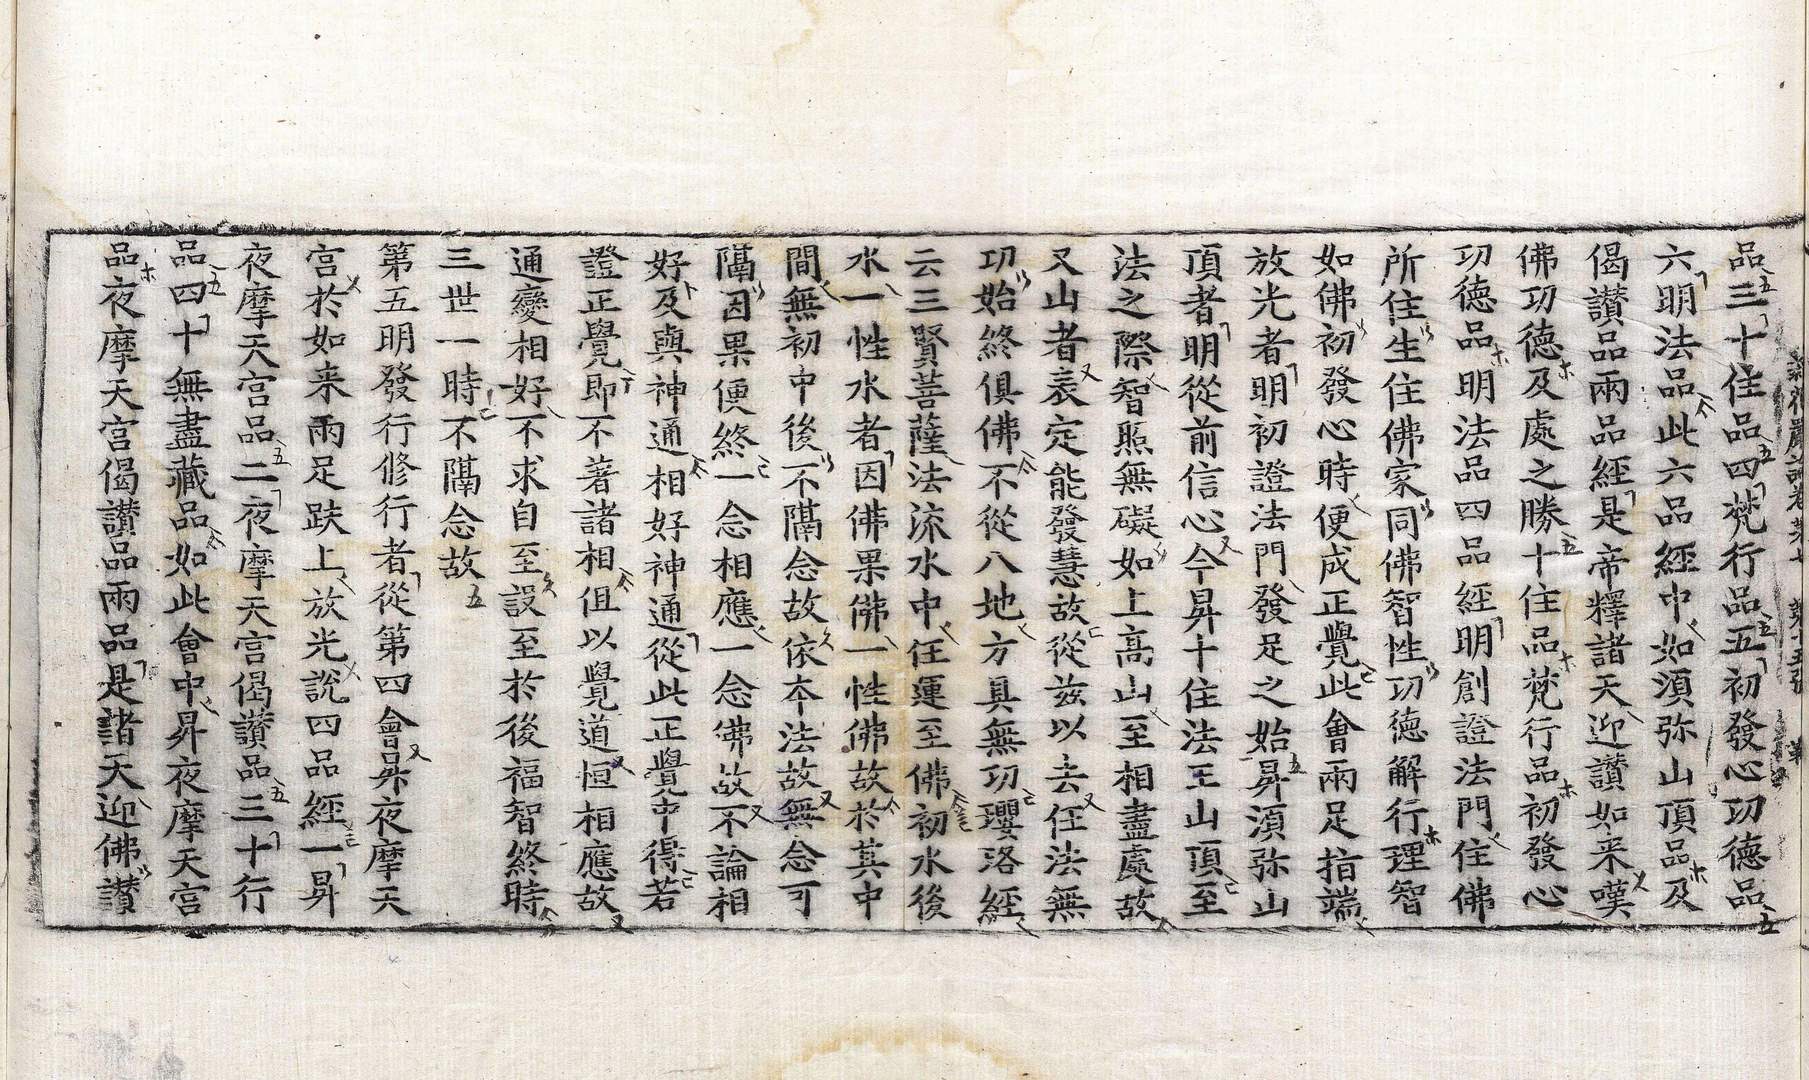 品三十住品四梵行品五初發心功德品
六明法品此六品經中如須弥山頂品及
偈讃品兩品經是帝釋諸天迎讃如来嘆
佛功德及處之勝十住品梵行品初發心
功德品明法品四品經明創證法門住佛
所住生住佛家同佛智性功德解行理智
如佛初發心時便成正覺此會兩足指端
放光者明初證法門發足之始昇須弥山
頂者明從前信心今昇十住法王山頂至
法之際智照無礙如上高山至相盡處故
又山者表定能發慧故從兹以去任法無
功始終俱佛不從八地方具無功瓔珞經
云三賢菩薩法流水中任運至佛初水後
水一性水者因佛果佛一性佛故於其中
間無初中後不隔念故依本法故無念可
隔因果便終一念相應一念佛故不論相
好及與神通相好神通從此正覺中得若
證正覺即不著諸相但以覺道恒相應故
通變相好不求自至設至於後福智終時
三世一時不隔念故
第五明發行修行者從第四會昇夜摩天
宫於如来兩足趺上放光説四品經一昇
夜摩天宫品二夜摩天宫偈讃品三十行
品四十無盡藏品如此會中昇夜摩天宫
品夜摩天宫偈讃品兩品是諸天迎佛讃